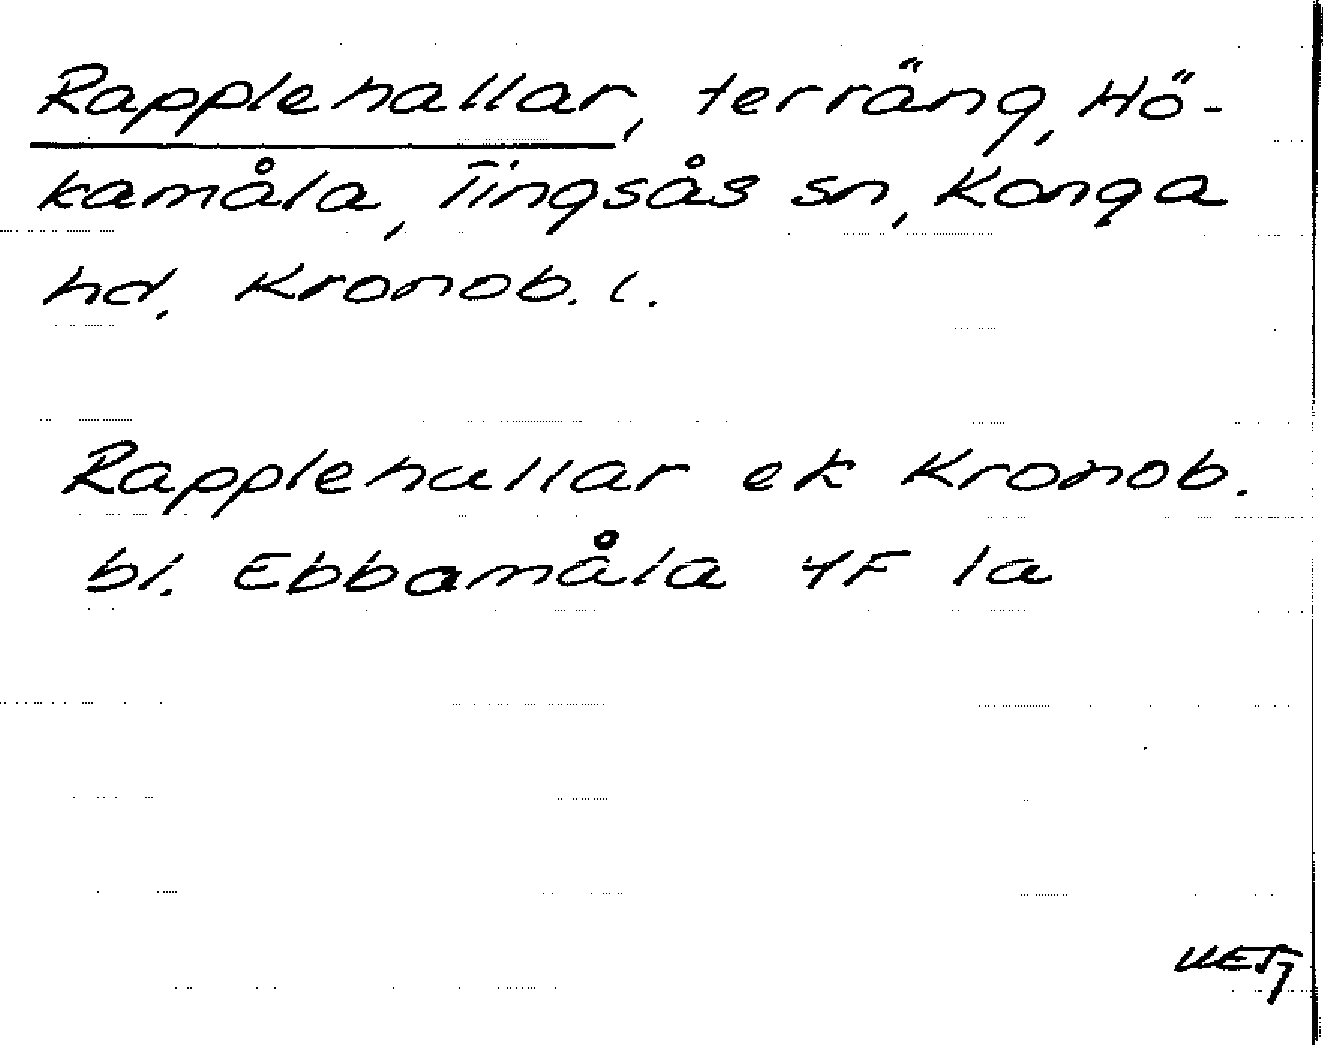 Rapplehallar, terräng, Hö-
kamåla, Tingsås sn, Konga
hd. Kronob. l.
Rapplehallar ek Kronob.
bl. Ebbamåla 4F 1a